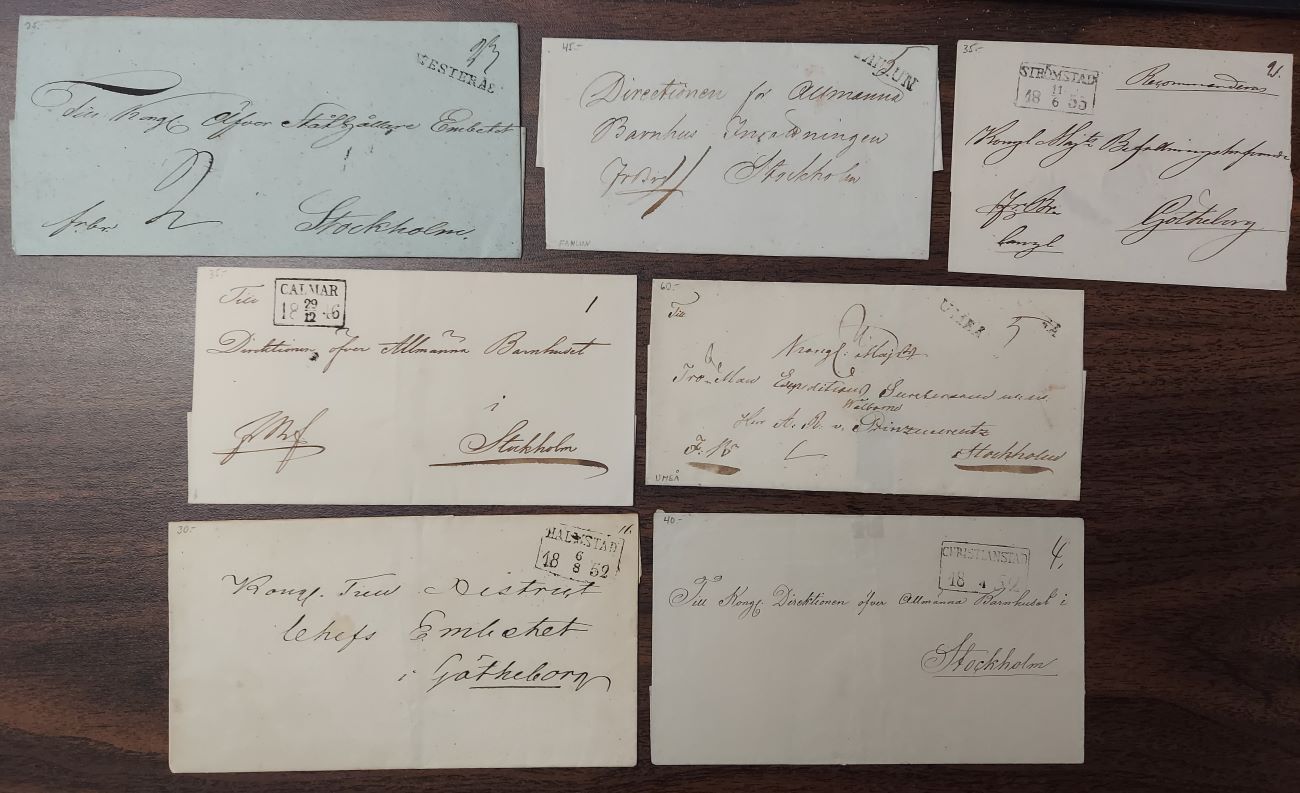 25.-
23
WESTERÅS
Till Kongl Öfver Ståthållare Embetet
2
frbr.
Stockholm.
45.-
FAHLUN
5
Directionen för Allmänna
Barnhus Inrättningen
FrBref
Stockholm
FAHLUN
35.-
STRÖMSTAD
11
18 6 55
21.
Recommenderas
Kongl Majts Befallningshafvande
Fr.Br.
Götheborg
35.-
Till
CALMAR
18 29 46
12
1
Direktionen öfver Allmänna Barnhuset
i
Stockholm
60.-
Till
UMEÅ
5
Kongl. Maj
Tro Man Expeditions
Välborne
Herr A. R. v.
Stockholm
UMEÅ
30.-
HALMSTAD
6
18 8 52
11.
Kongl. District
Chefs Embetet
i Götheborg
40-
CHRISTIANSTAD
18 4 52
4.
Till Kongl. Direktionen öfver Allmänna Barnhuset i
Stockholm